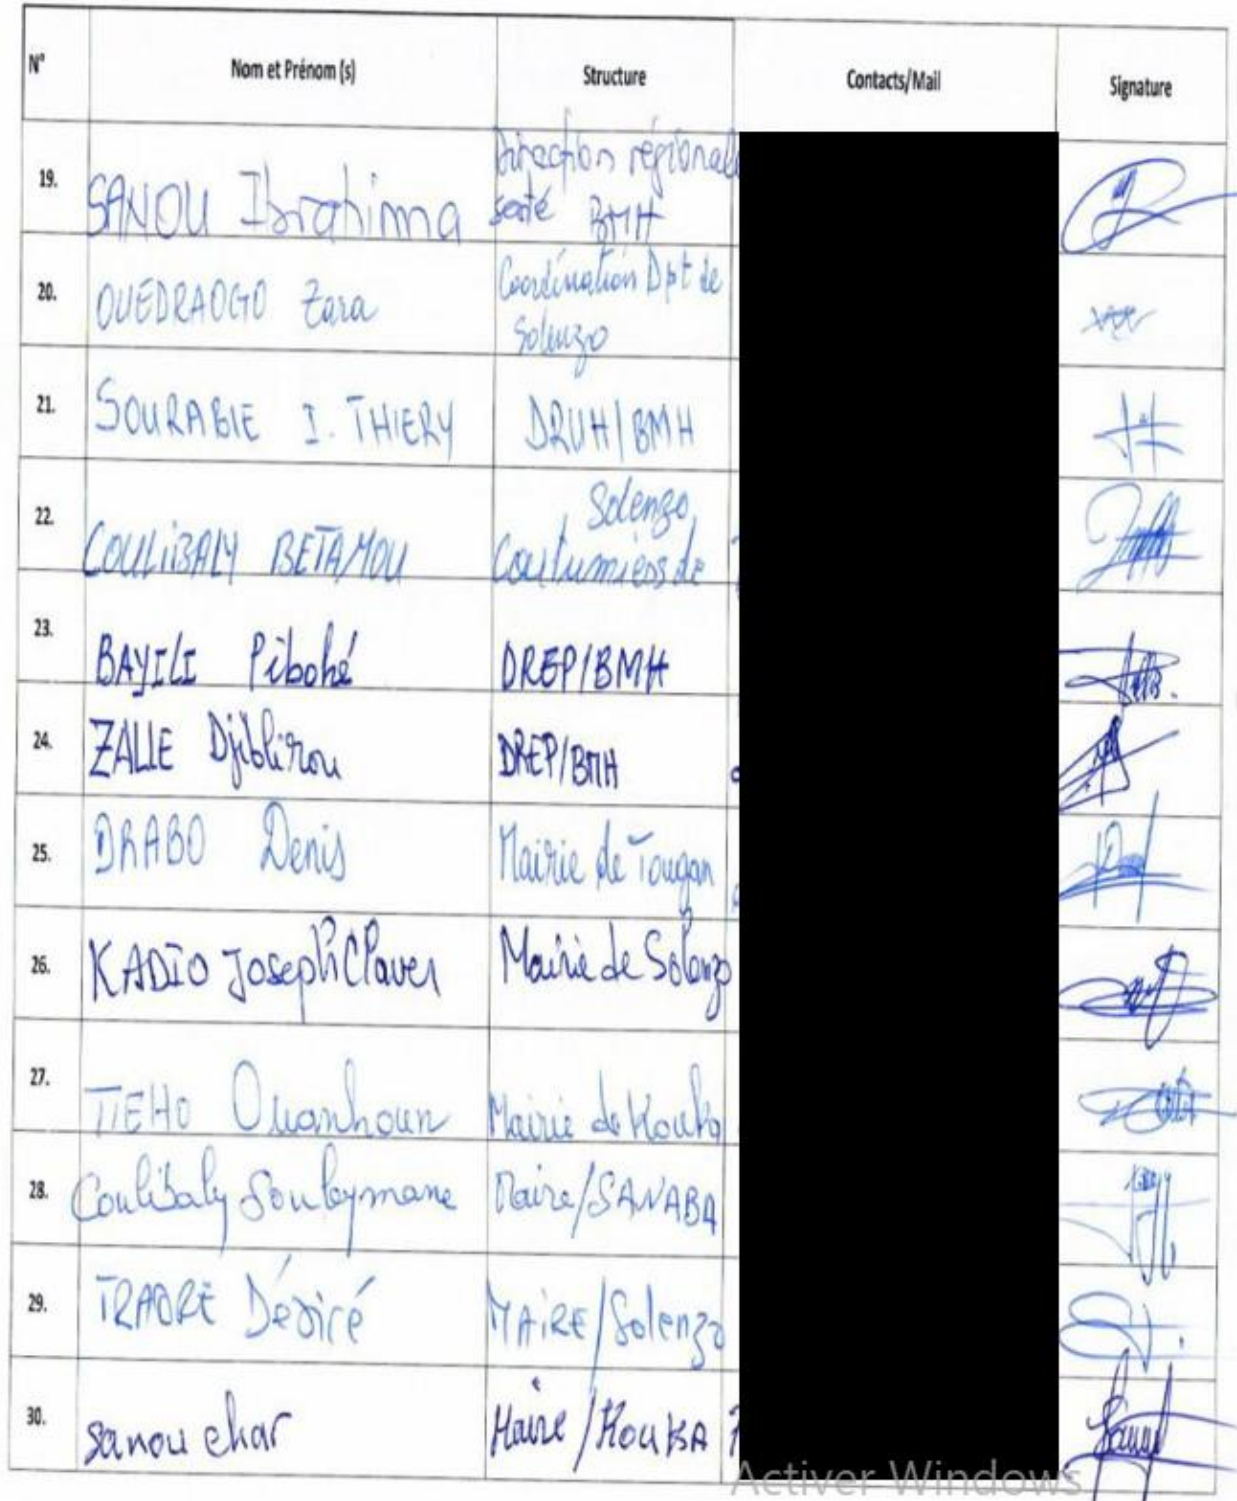 N° Nom et Prénom (s) Structure Contacts/Mail Signature
19. SANOU Ibrahima Direction régionale
santé BMH
20. OUEDRAOGO Zara Coordination Dpt de
Solenzo
21. SOURABIE I. THIERY DRUH/BMH
22. COULIBALY BETAMOU Solenzo
Coutumiers de
23. BAYILI Pibohé DREP/BMH
24. ZALLE Djiblirou DREP/BMH
25. DRABO Denis Mairie de Tougan
26. KADIO Joseph Claver Mairie de Solenzo
27. TIEHO Ouanhoun Mairie de Kouka
28. Coulibaly Souleymane Maire/SANABA
29. TRAORE Désiré MAIRE/Solenzo
30. Sanou char Maire/KOUKA
Activer Windows